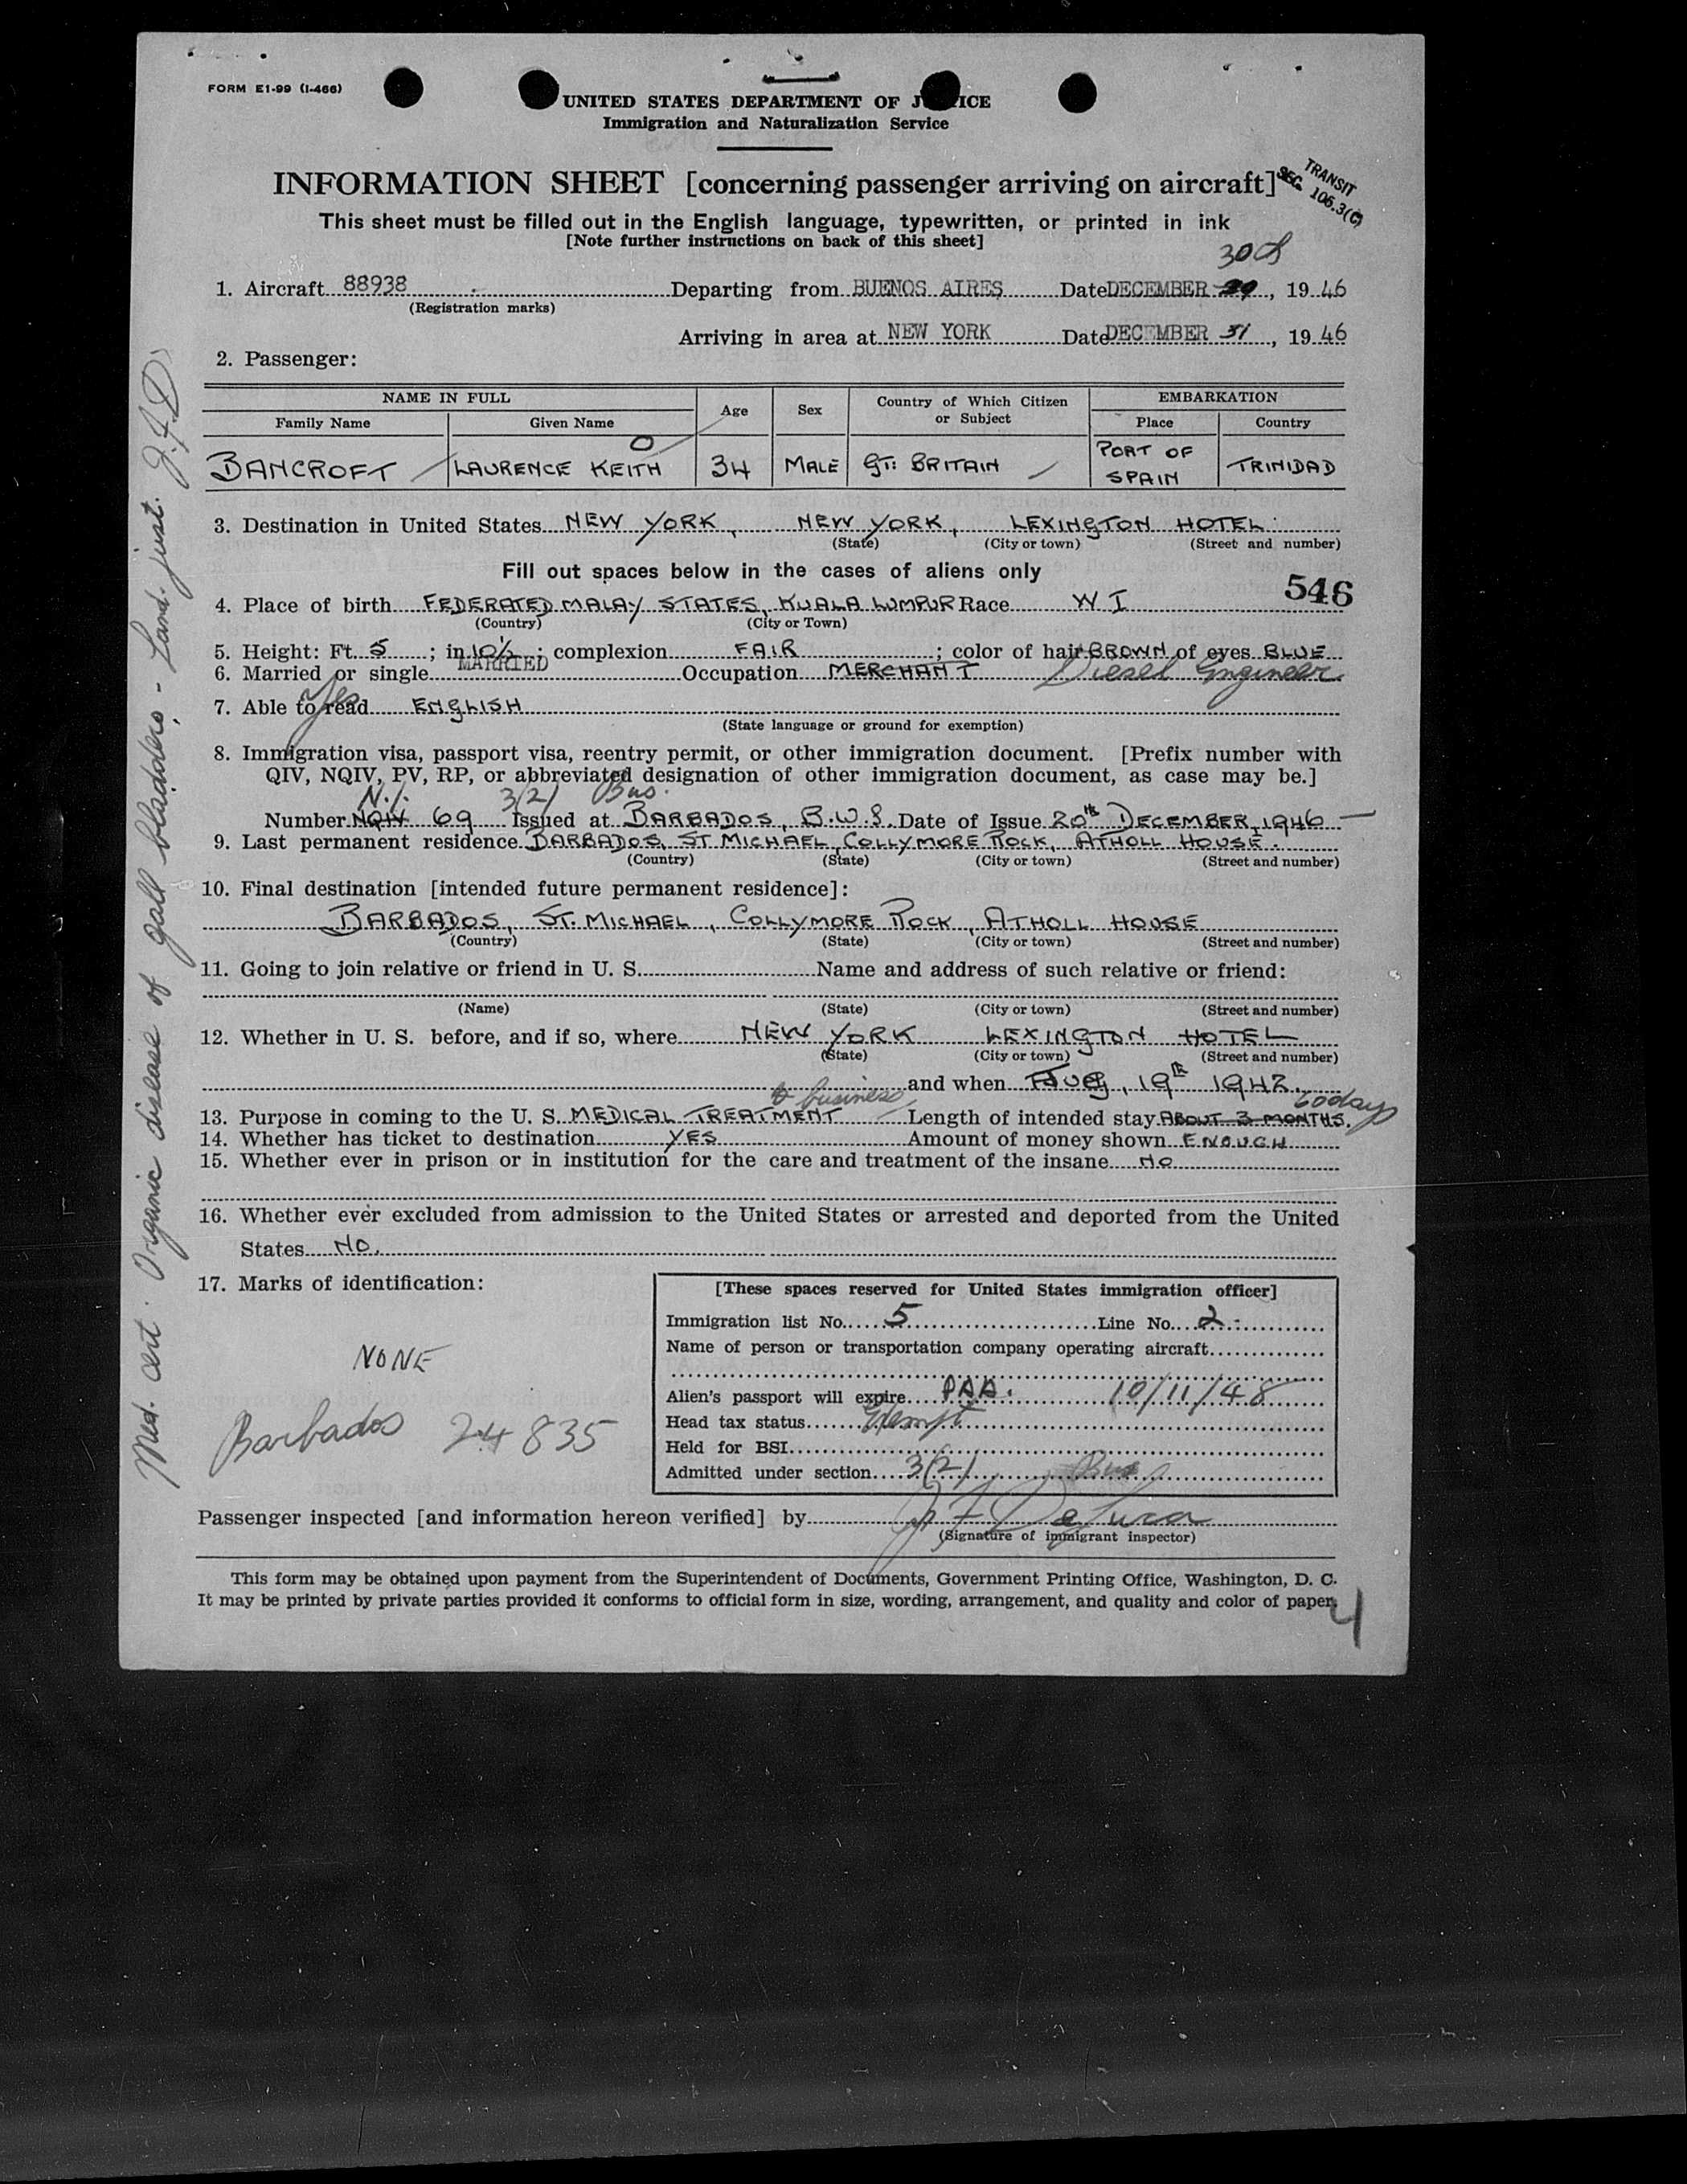 FORM E1-99 (I-466)
UNITED STATES DEPARTMENT OF J ICE
Immigration and Naturalization Service
INFORMATION SHEET [concerning passenger arriving on aircraft]
TRANSIT
SEC. 106.3(C)
This sheet must be filled out in the English language, typewritten, or printed in ink
[Note further instructions on back of this sheet]
30th
1. Aircraft 88938 Departing from BUENOS AIRES Date DECEMBER 29, 19 46
(Registration marks)
Arriving in area at NEW YORK Date DECEMBER 31, 19 46
2. Passenger:
NAME IN FULL Age Sex Country of Which Citizen or Subject EMBARKATION
Family Name Given Name Place Country
BANCROFT LAURENCE KEITH 34 MALE GT: BRITAIN PORT OF SPAIN TRINIDAD
3. Destination in United States NEW YORK, NEW YORK, LEXINGTON HOTEL.
(State) (City or town) (Street and number)
Fill out spaces below in the cases of aliens only
546
4. Place of birth FEDERATED MALAY STATES, KUALA LUMPUR Race W I
(Country) (City or Town)
5. Height: Ft. 5 ; in 10½ ; complexion FAIR ; color of hair BROWN of eyes BLUE
6. Married or single MARRIED Occupation MERCHANT Diesel Engineer
Yes
7. Able to read ENGLISH
(State language or ground for exemption)
8. Immigration visa, passport visa, reentry permit, or other immigration document. [Prefix number with
QIV, NQIV, PV, RP, or abbreviated designation of other immigration document, as case may be.]
N.I. 3(2) Bus.
Number NQIV 69 Issued at BARBADOS, B.W.I. Date of Issue 20th DECEMBER, 1946
9. Last permanent residence BARBADOS, ST MICHAEL, COLLYMORE ROCK, ATHOLL HOUSE.
(Country) (State) (City or town) (Street and number)
10. Final destination [intended future permanent residence]:
BARBADOS, ST. MICHAEL, COLLYMORE ROCK, ATHOLL HOUSE
(Country) (State) (City or town) (Street and number)
11. Going to join relative or friend in U. S. Name and address of such relative or friend:
(Name) (State) (City or town) (Street and number)
12. Whether in U. S. before, and if so, where NEW YORK LEXINGTON HOTEL
(State) (City or town) (Street and number)
and when Aug, 19th 1942.
& business 60 days
13. Purpose in coming to the U. S. MEDICAL TREATMENT Length of intended stay ABOUT 3 MONTHS.
14. Whether has ticket to destination YES Amount of money shown ENOUGH
15. Whether ever in prison or in institution for the care and treatment of the insane NO
16. Whether ever excluded from admission to the United States or arrested and deported from the United
States NO.
17. Marks of identification:
NONE
Barbados 24835
[These spaces reserved for United States immigration officer]
Immigration list No. 5 Line No. 2
Name of person or transportation company operating aircraft
Alien's passport will expire PAA. 10/11/48
Head tax status Exempt
Held for BSI
Admitted under section 3(2) Bus
Passenger inspected [and information hereon verified] by J F De Luca
(Signature of immigrant inspector)
This form may be obtained upon payment from the Superintendent of Documents, Government Printing Office, Washington, D. C.
It may be printed by private parties provided it conforms to official form in size, wording, arrangement, and quality and color of paper.
4
Med. cert. Organic disease of gall bladder, - Land. just. J.F.D.